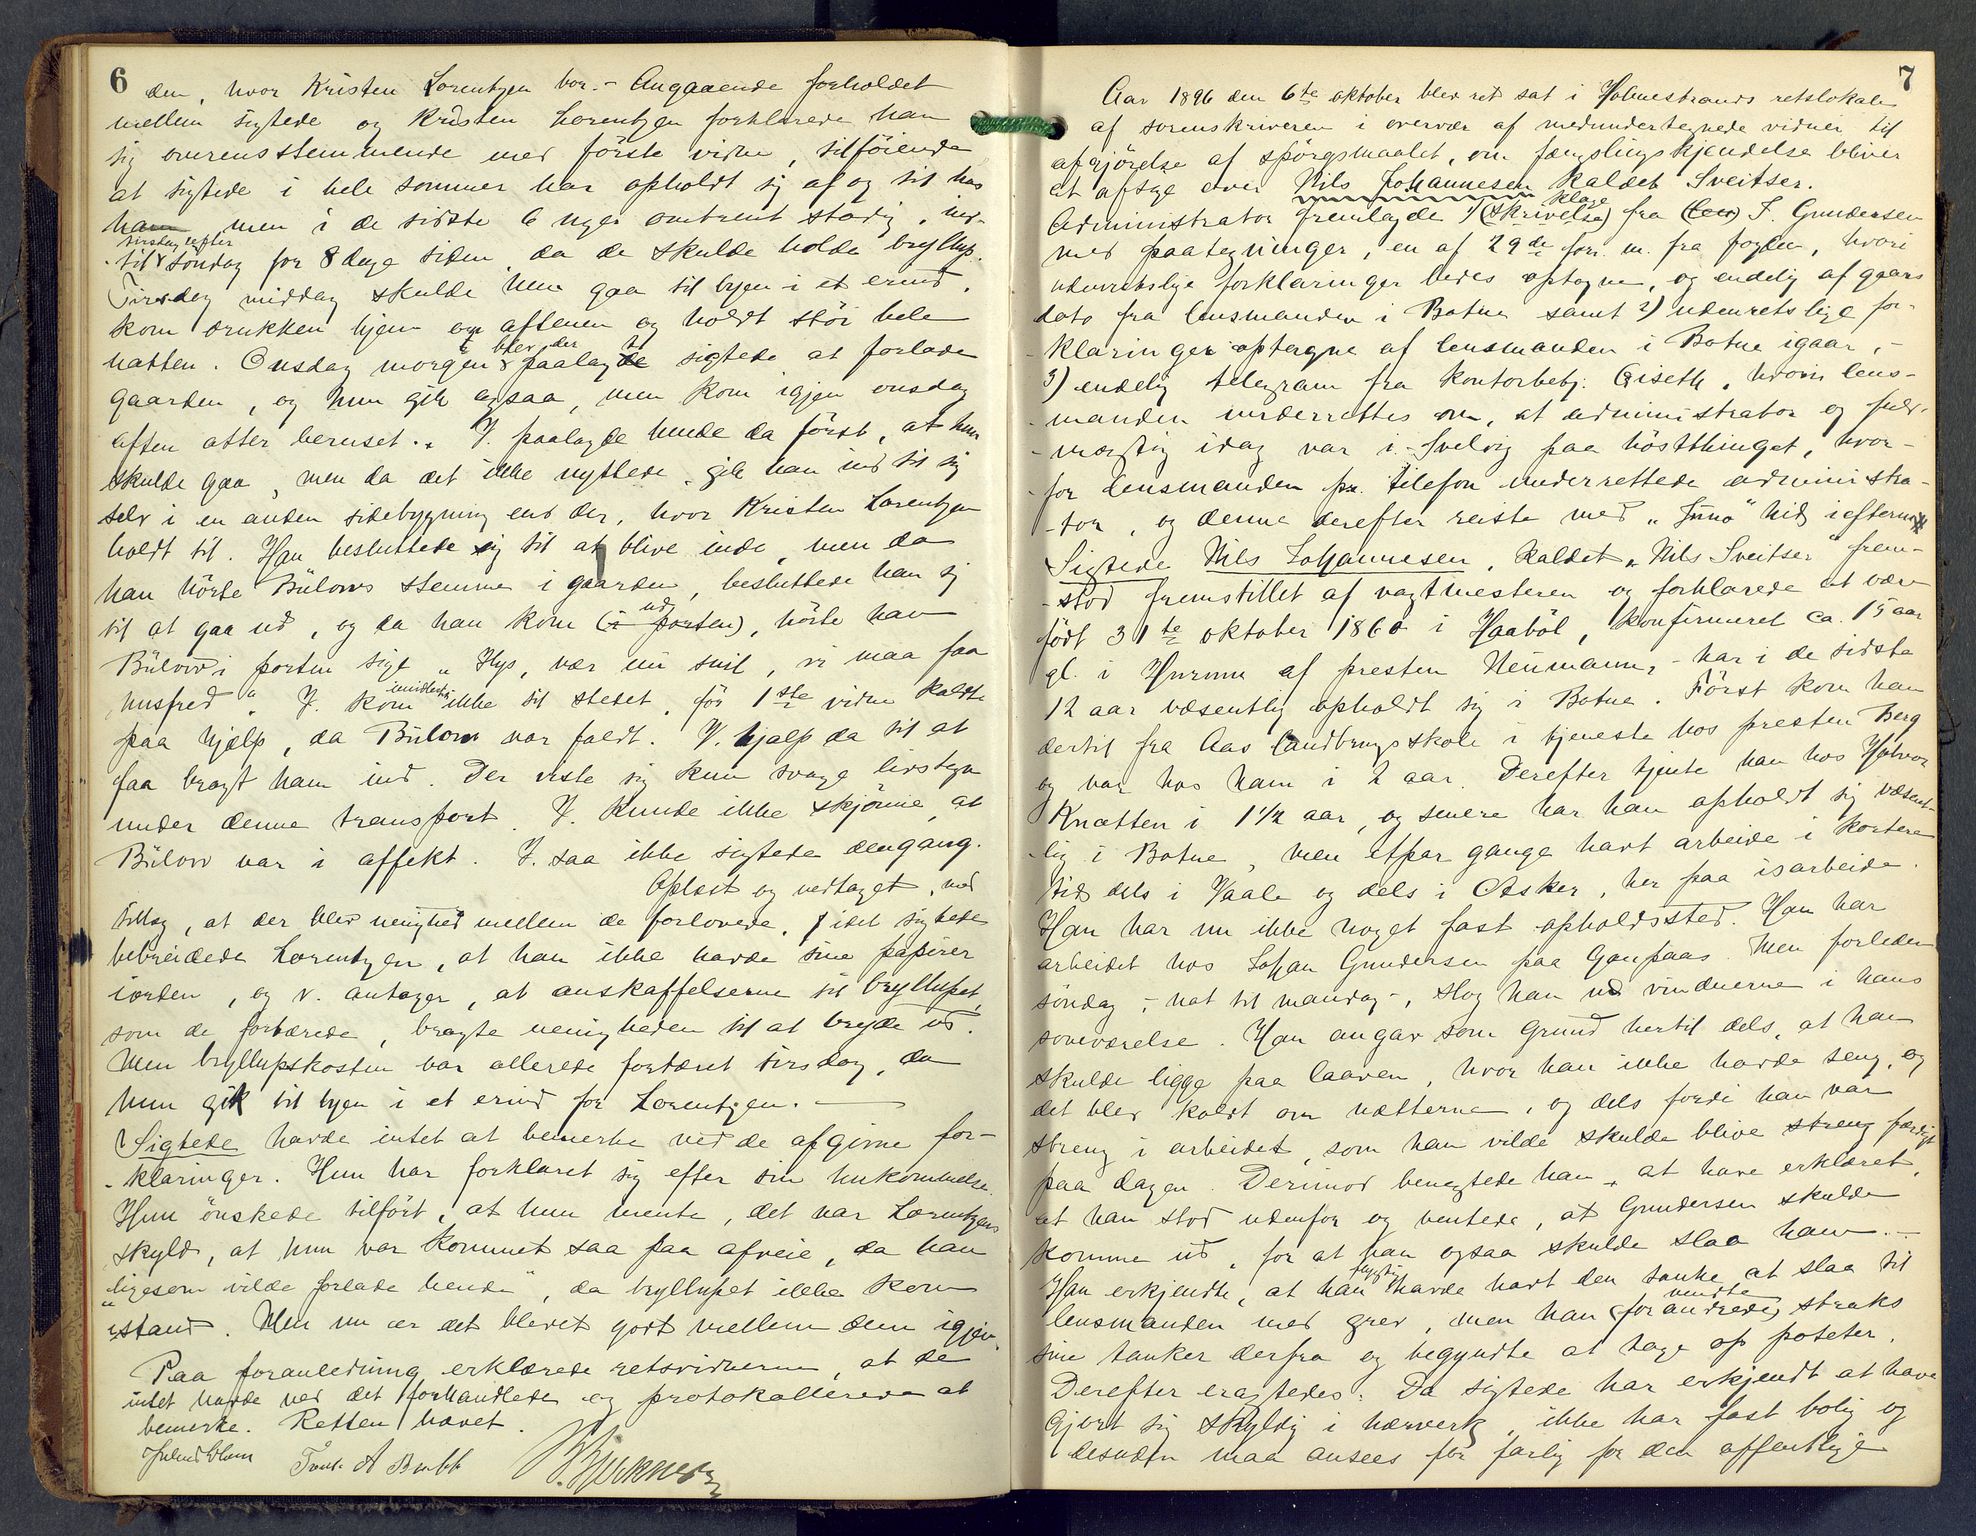 6
den, hvor Kristen Lorentzen bor. - Angaaende forholdet
mellem sigtede og Kristen Lorentzen forklarede han
sig overensstemmende med første vidne, tilføiende
at sigtede i hele sommer har opholdt sig af og til hos
ham men i de sidste 6 uger omtrent stadig, ind-
tirsdag efter
til søndag for 8 dage siden, da de skulde holde bryllup.
Tirsdag middag skulde hun gaa til byen i et erind,
kom drukken hjem om aftenen og holdt støi hele
natten. Onsdag morgen blev der paalagt sigtede at forlade
gaarden, og hun gik ogsaa, men kom igjen onsdag
aften atter beruset. V. paalagde hende da først, at hun
skulde gaa, men da det ikke nyttede, gik han ind til sig
selv i en anden sidebygning end der, hvor Kristen Lorentzen
holdt til. Han besluttede sig til at blive inde, men da
han hørte Bülows stemme i gaarden, besluttede han sig
til at gaa ud, og da han kom (i porten) ud, hørte han
Bülow i porten sige "Hys, vær nu snil, vi maa faa
husfred". V. kom imidlertid ikke til stedet, før 1ste vidne kaldte
paa hjælp, da Bülow var faldt. V. hjalp da til at
faa bragt ham ind. Der viste sig kun svage livstegn
under denne transport. V. kunde ikke skjønne, at
Bülow var i affekt. V. saa ikke sigtede dengang.
Oplæst og vedtaget, med
tillæg, at der blev uenighed mellem de forlovede, idet sigtede
bebreidede Lorentzen, at han ikke havde sine papirer
iorden, og v. antager, at anskaffelserne til bryllupet,
som de fortærede, bragte uenigheden til at bryde ud.
Men bryllupskosten var allerede fortæret tirsdag, da
hun gik til byen i et erind for Lorentzen.
Sigtede havde intet at bemerke ved de afgivne for-
klaringer. Hun har forklaret sig efter sin hukommelse.
Hun ønskede tilført, at hun mente, det var Lorentzens
skyld, at hun var kommet saa paa afveie, da han
"ligesom vilde forlade hende", da bryllupet ikke kom
istand. Men nu er det blevet godt mellem dem igjen.
Paa foranledning erklærede retsvidnerne, at de
intet havde ved det forhandlede og protokollerede at
bemerke. Retten hævet.
7
Aar 1896 den 6te oktober blev ret sat i Holmestrands retslokale
af sorenskriveren i overvær af medundertegnede vidner til
afgjørelse af spørgsmaalet, om fængslingskjendelse bliver
at afsige over Nils Johannesen kaldet Sveitser.
Administrator fremlagde 1) (skrivelse) klage fra (len) J. Gundersen
med paategninger, en af 29de for. m. fra fogden, hvori
udenretslige forklaringer bedes optagne, og endelig af gaars
dato fra lensmanden i Botne samt 2) udenretslige for-
klaringer optagne af lensmanden i Botne igaar, -
3) endelig telegram fra kontorbetj. Giseth, hvori lens-
manden underrettes om, at administrator og fuld-
mægtig idag var i Svelvig paa høstthinget, hvor-
for lensmanden pr. telefon underrettede administra-
tor, og denne derefter reiste med "Juno" hid i efterm.
Sigtede Nils Johannesen, kaldet "Nils Sveitser" frem-
stod fremstillet af vagtmesteren og forklarede at være
født 31te oktober 1860 i Haabøl, konfirmeret ca. 15 aar
gl. i Hurum af presten Neumann, - har i de sidste
12 aar væsentlig opholdt sig i Botne. Først kom han
dertil fra Aas landbrugsskole i tjeneste hos presten Berg
og var hos ham i 2 aar. Derefter tjente han hos Halvor
Knatten i 1 1/2 aar, og senere har han opholdt sig væsent-
lig i Botne, men etpar gange havt arbeide i kortere
tid dels i Vaale og dels i Asker, her paa isarbeide.
Han har nu ikke noget fast opholdssted. Han har
arbeidet hos Johan Gundersen paa Gaupaas. Men forleden
søndag, - nat til mandag -, slog han ud vinduerne i hans
soveværelse. Han angav som grund hertil dels, at han
skulde ligge paa laaven, hvor han ikke havde seng, og
det blev koldt om nætterne, og dels fordi han var
streng i arbeidet, som han vilde skulde blive streng færdigt
paa dagen. Derimod benegtede han, at have erklæret,
at han stod udenfor og ventede, at Gundersen skulde
komme ud, for at han ogsaa skulde slaa ham. -
Han erkjendte, at han havde havt den tanke, at slaa til
lensmanden med grev, men han (forandrede) vendte straks
sine tanker derfra og begyndte at tage op poteter.
Derefter eragtedes: Da sigtede har erkjendt at have
gjort sig skyldig i hærverk, ikke har fast bolig og
desuden maa ansees for farlig for den offentlige